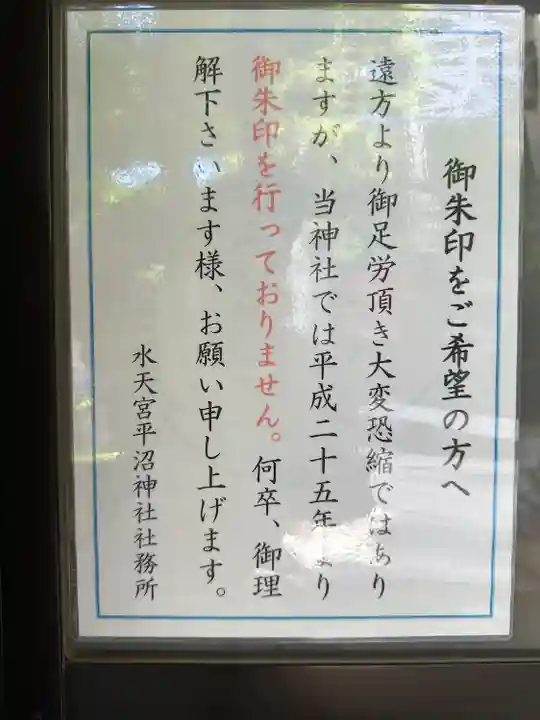 御朱印をご希望の方へ
遠方より御足労頂き大変恐縮ではあり
ますが、当神社では平成二十五年より
御朱印を行っておりません。何卒、御理
解下さいます様、お願い申し上げます。
水天宮平沼神社社務所